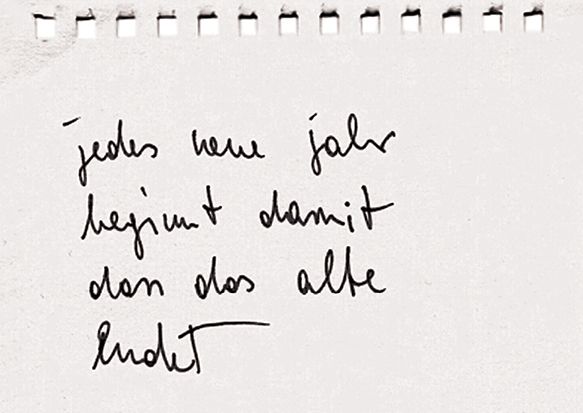 jedes neue jahr
beginnt damit
dass das alte
endet